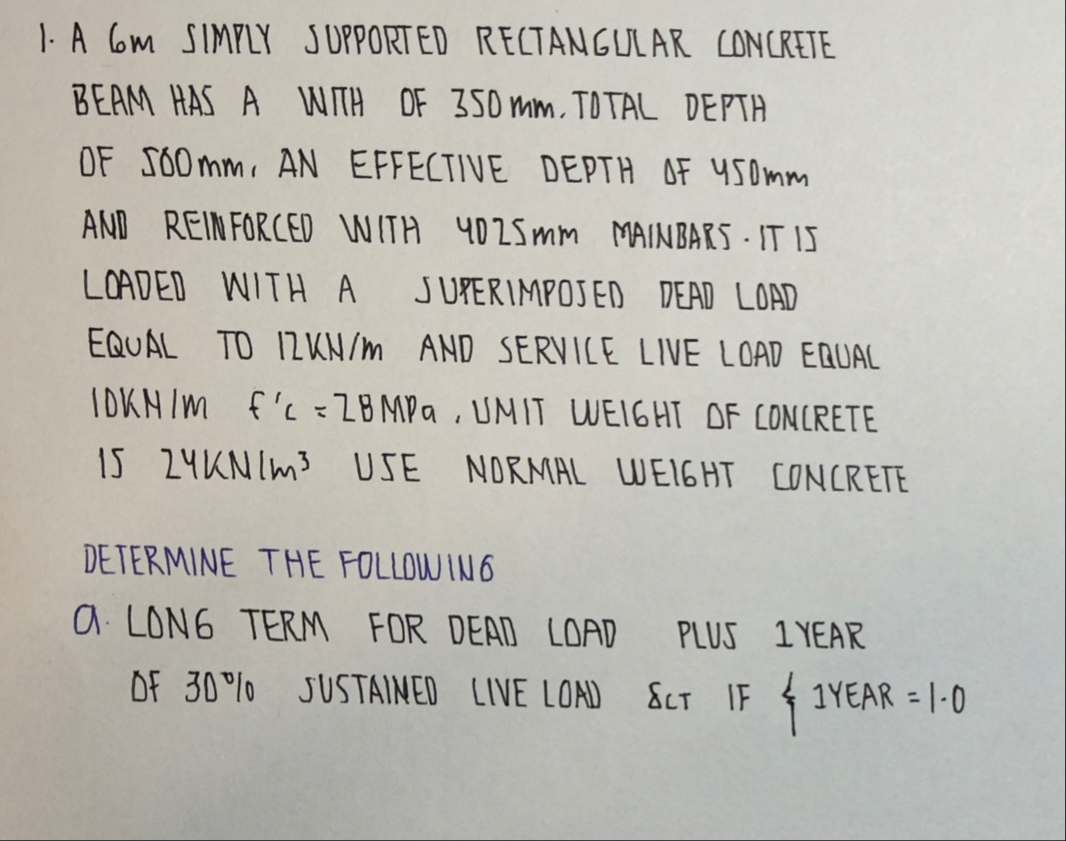 1. A 6m SIMPLY SUPPORTED RECTANGULAR CONCRETE
BEAM HAS A WITH OF 350mm. TOTAL DEPTH
OF 500mm, AN EFFECTIVE DEPTH OF 450mm
AND REINFORCED WITH 4D25mm MAINBARS. IT IS
LOADED WITH A SUPERIMPOSED DEAD LOAD
EQUAL TO 12KN/m AND SERVICE LIVE LOAD EQUAL
10KN/M f'c = 28MPa, UMIT WEIGHT OF CONCRETE
IS 24KN/m³ USE NORMAL WEIGHT CONCRETE
DETERMINE THE FOLLOWING
a. LONG TERM FOR DEAD LOAD PLUS 1YEAR
OF 30% SUSTAINED LIVE LOAD δCT IF ξ 1YEAR = 1.0